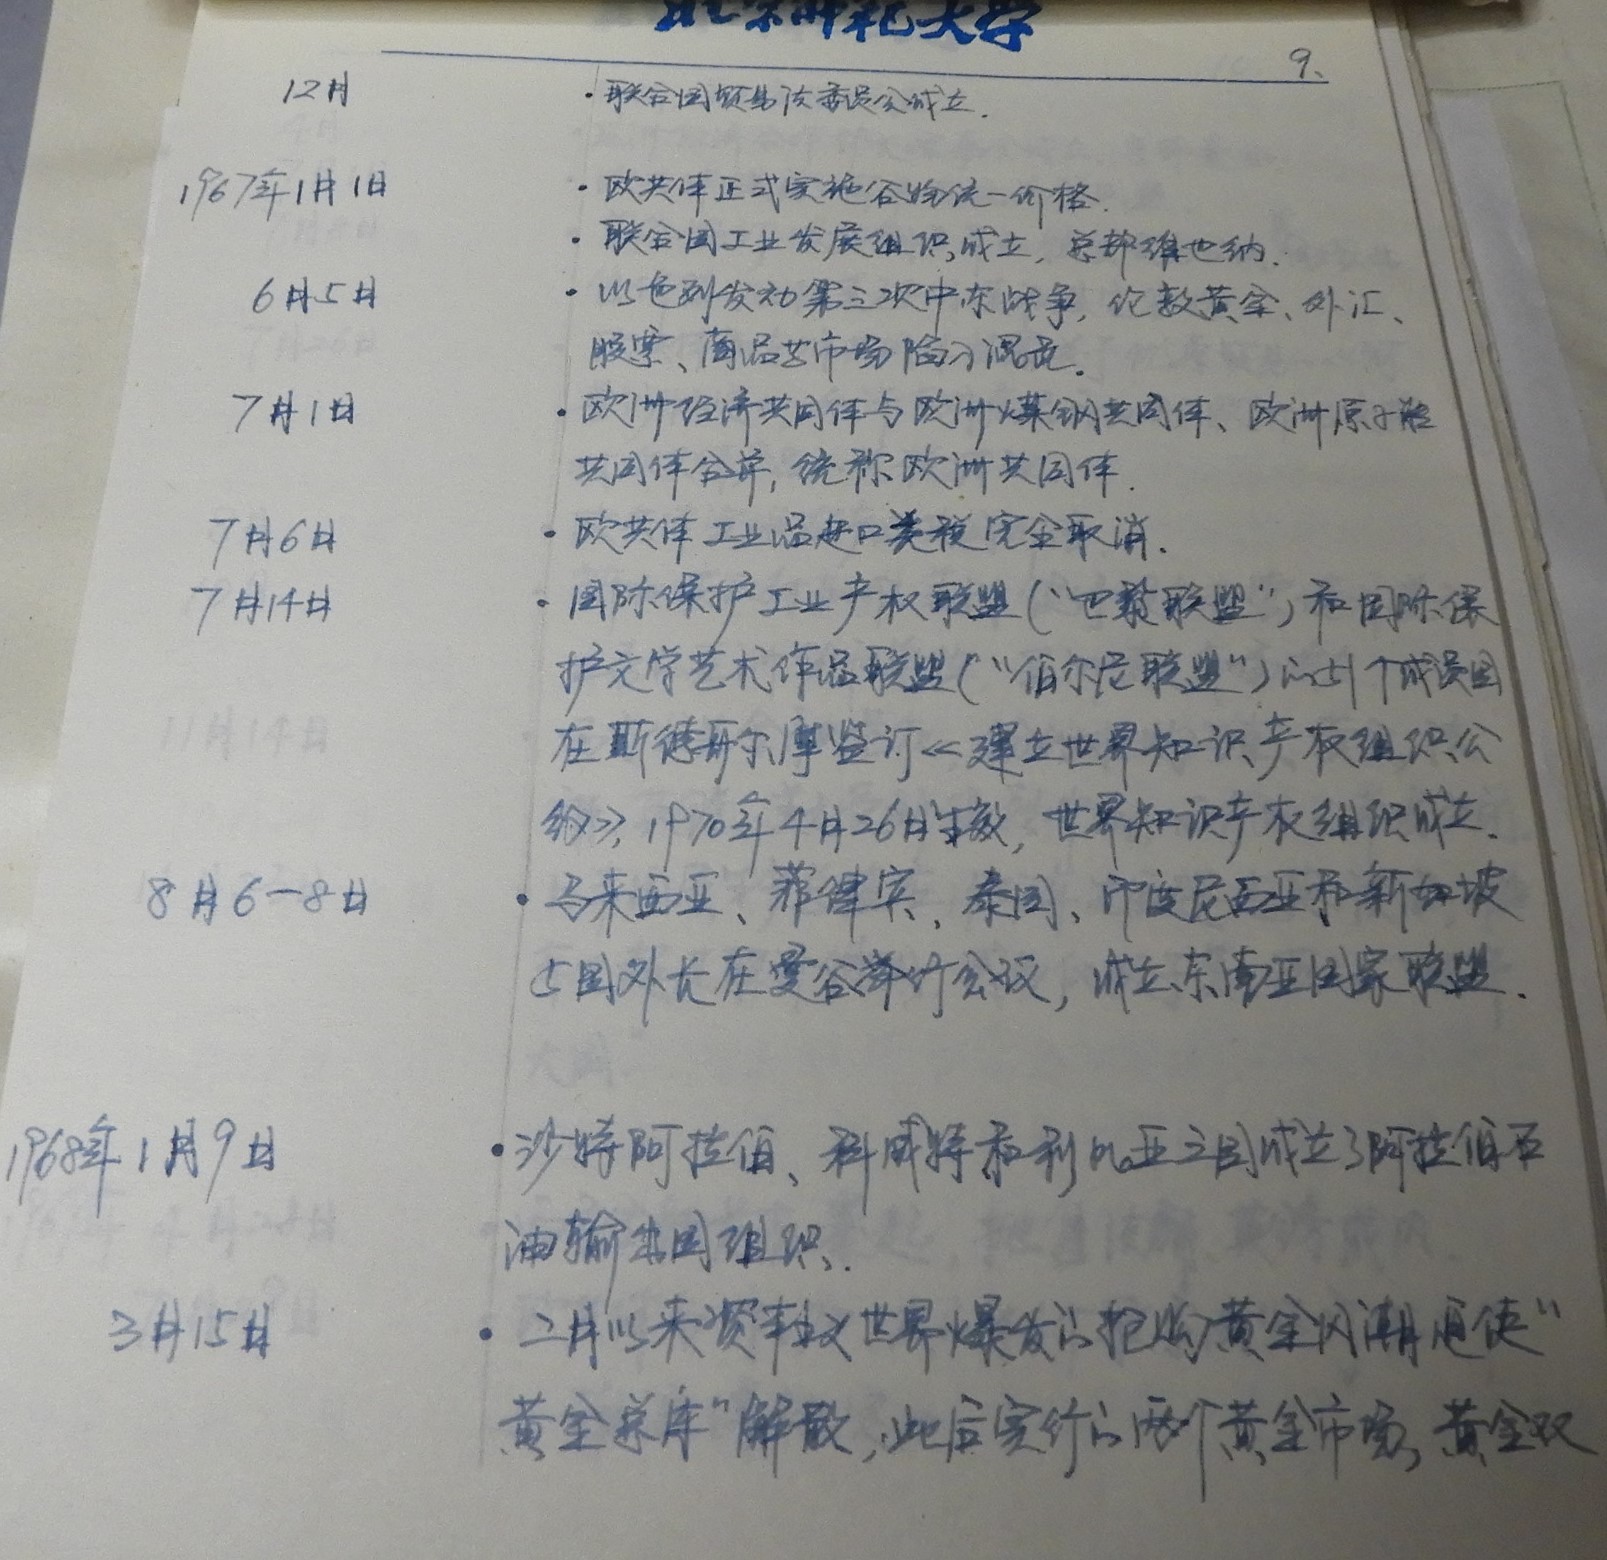 北京师范大学
9.
12月 ·联合国贸易法委员会成立.
1967年1月1日 ·欧共体正式实施谷物统一价格.
·联合国工业发展组织成立, 总部维也纳.
6月5日 ·以色列发动第三次中东战争, 伦敦黄金、外汇、
股票、商品等市场陷入混乱.
7月1日 ·欧洲经济共同体与欧洲煤钢共同体、欧洲原子能
共同体合并, 统称欧洲共同体.
7月6日 ·欧共体工业品进口关税完全取消.
7月14日 ·国际保护工业产权联盟(“巴黎联盟”)和国际保
护文学艺术作品联盟(“伯尔尼联盟”)的51个成员国
在斯德哥尔摩签订《建立世界知识产权组织公
约》, 1970年4月26日生效, 世界知识产权组织成立.
8月6-8日 ·马来西亚、菲律宾、泰国、印度尼西亚和新加坡
5国外长在曼谷举行会议, 成立东南亚国家联盟.
1968年1月9日 ·沙特阿拉伯、科威特和利比亚三国成立了阿拉伯石
油输出国组织.
3月15日 ·二月以来资本主义世界爆发的抢购黄金风潮迫使“
黄金总库”解散, 此后实行的两个黄金市场, 黄金双